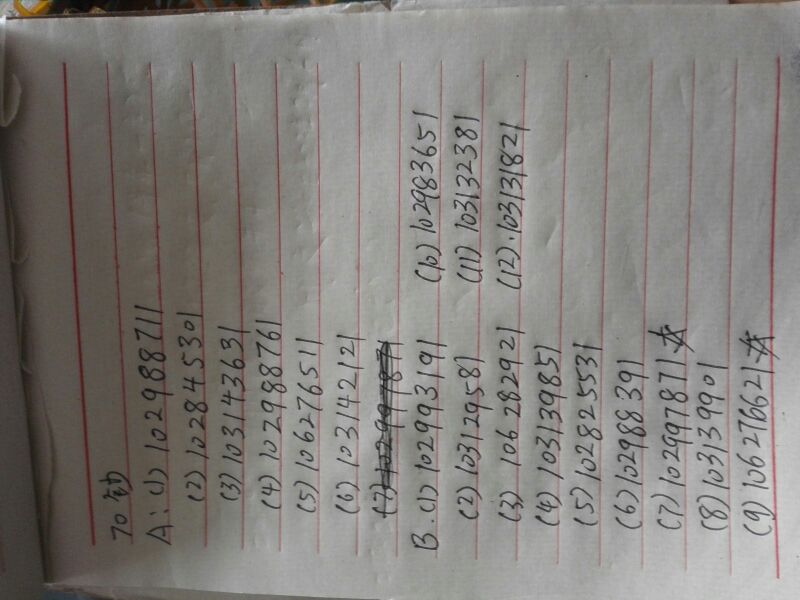 70钞
A: (1) 102988711
(2) 102845301
(3) 103143631
(4) 102988761
(5) 106276511
(6) 103142121
(7) 102997871
B. (1) 102993191
(2) 103129581
(3) 106282921
(4) 103139851
(5) 102825531
(6) 102988391
(7) 102997871 ☆
(8) 103139901
(9) 106276621 ☆
(10) 102983651
(11) 103132381
(12). 103131821